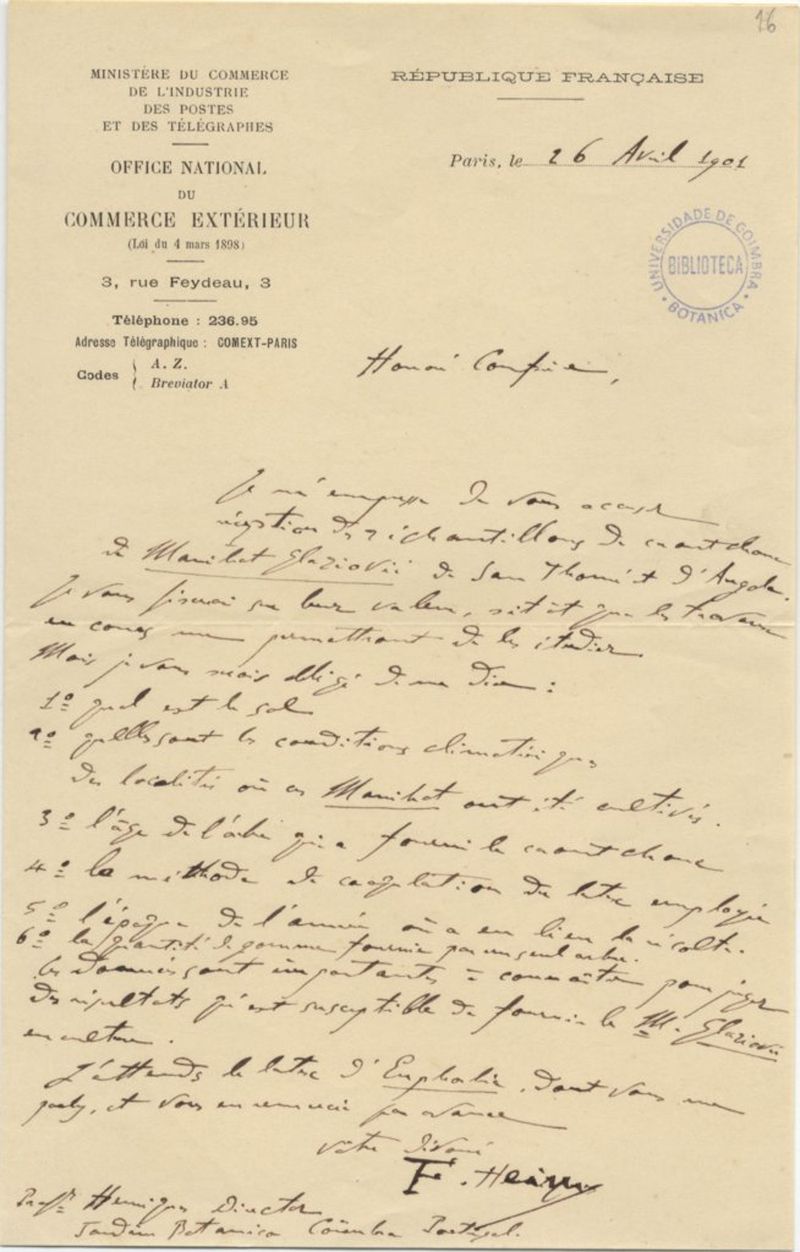 16
MINISTÈRE DU COMMERCE
DE L'INDUSTRIE
DES POSTES
ET DES TÉLÉGRAPHES
OFFICE NATIONAL
DU
COMMERCE EXTÉRIEUR
(Loi du 4 mars 1898)
3, rue Feydeau, 3
Téléphone : 236.95
Adresse Télégraphique : COMEXT-PARIS
Codes { A. Z.
Breviator A
RÉPUBLIQUE FRANÇAISE
Paris, le 26 Avril 1901
UNIVERSIDADE DE COIMBRA
BIBLIOTECA
BOTANICA
Honoré Confrère,
Je m'empresse de vous accuser
réception des 2 échantillons de caoutchouc
de Manihot Glaziovii de San Thomé et d'Angola.
Je vous fixerai sur leur valeur, sitôt que les travaux
en cours me permettront de les étudier.
Mais je vous serais obligé de me dire :
1º quel est le sol
2º quelles sont les conditions climatériques
des localités où ces Manihot ont été cultivés.
3º l'âge de l'arbre qui a fourni le caoutchouc
4º la méthode de coagulation du latex employée
5º l'époque de l'année où a eu lieu la récolte.
6º la quantité de gomme fournie par un seul arbre.
les données sont importantes à connaître pour juger
des résultats qu'est susceptible de fournir le M. Glaziovii
en culture.
J'attends le latex d'Euphorbia, dont vous me
parlez, et vous en remercie par avance
votre dévoué
F. Heim
Profr Henriques Director
Jardim Botanico Coïmbra Portugal.